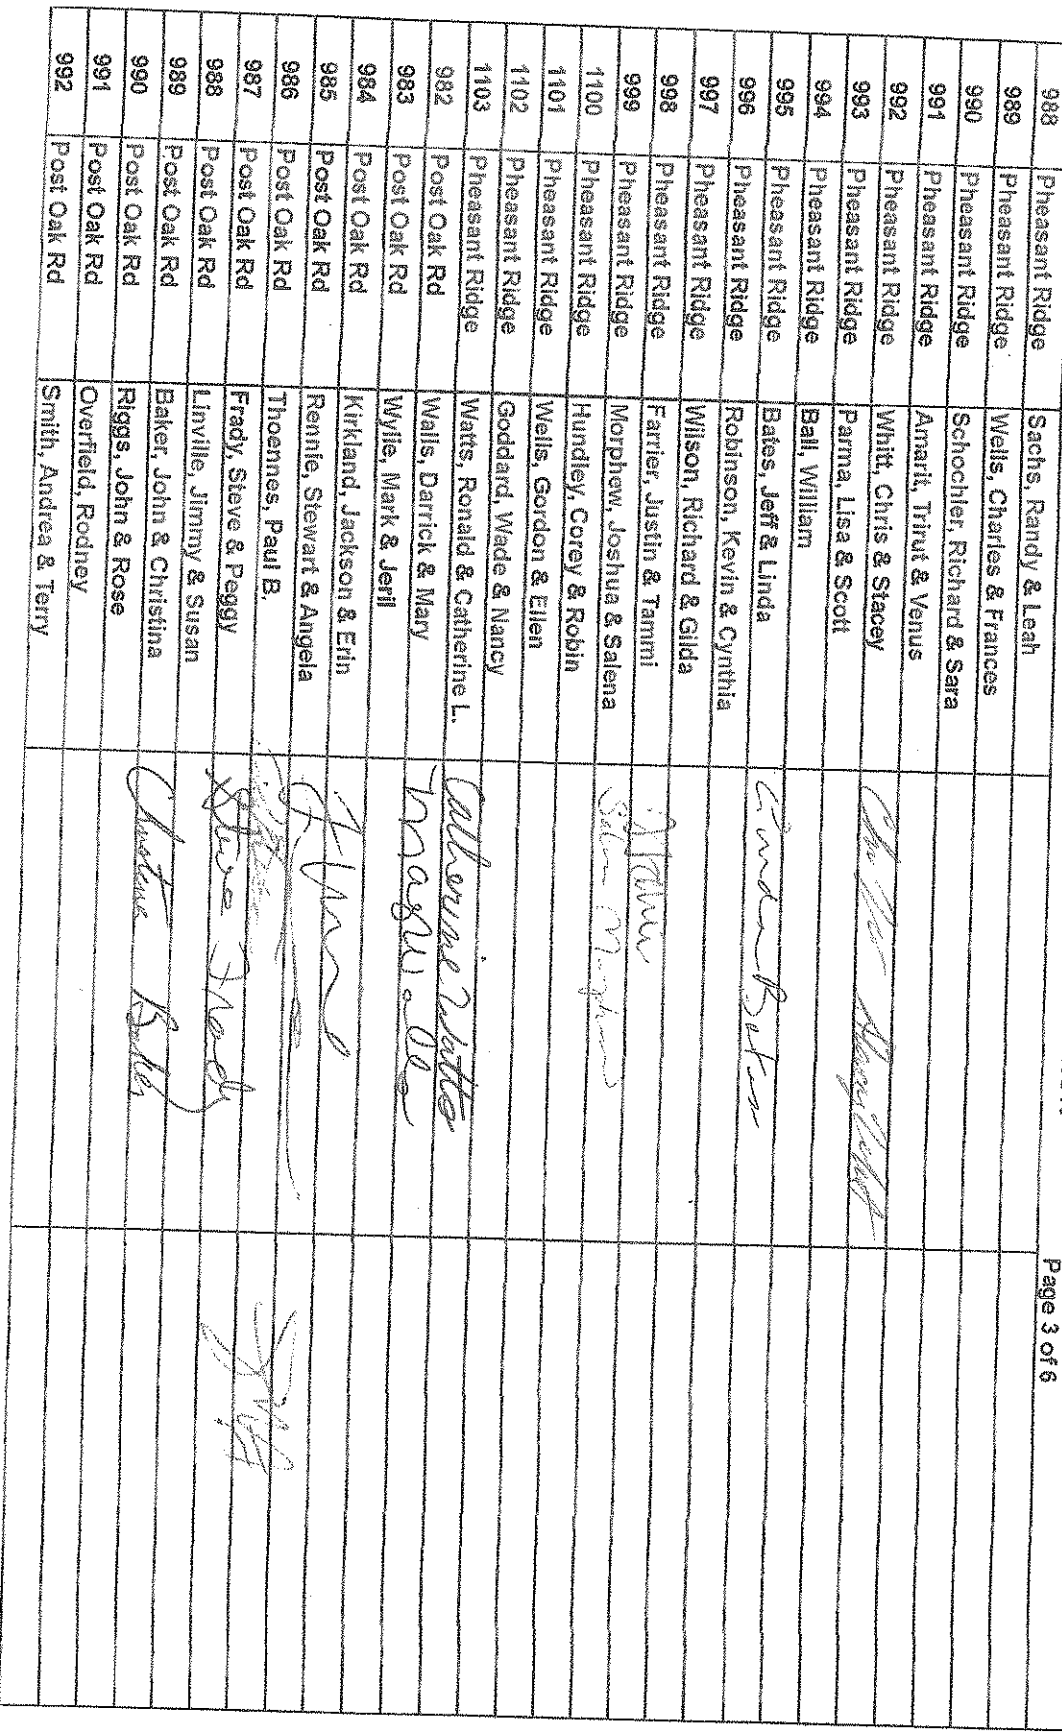 Page 3 of 6
988 Pheasant Ridge Sachs, Randy & Leah
989 Pheasant Ridge Wells, Charles & Frances
990 Pheasant Ridge Schochler, Richard & Sara
991 Pheasant Ridge Amarit, Trirut & Venus
992 Pheasant Ridge Whitt, Chris & Stacey
993 Pheasant Ridge Parma, Lisa & Scott
994 Pheasant Ridge Ball, William
995 Pheasant Ridge Bates, Jeff & Linda Linda Bates
996 Pheasant Ridge Robinson, Kevin & Cynthia
997 Pheasant Ridge Wilson, Richard & Gilda
998 Pheasant Ridge Farrier, Justin & Tammi
999 Pheasant Ridge Morphew, Joshua & Salena
1100 Pheasant Ridge Hundley, Corey & Robin
1101 Pheasant Ridge Wells, Gordon & Ellen
1102 Pheasant Ridge Goddard, Wade & Nancy
1103 Pheasant Ridge Watts, Ronald & Catherine L. Catherine Watts
982 Post Oak Rd Walls, Darrick & Mary Mary Walls
983 Post Oak Rd Wylie, Mark & Jeril
984 Post Oak Rd Kirkland, Jackson & Erin
985 Post Oak Rd Rennie, Stewart & Angela
986 Post Oak Rd Thoennes, Paul B.
987 Post Oak Rd Frady, Steve & Peggy Steve Frady
988 Post Oak Rd Linville, Jimmy & Susan
989 Post Oak Rd Baker, John & Christina Christina Baker
990 Post Oak Rd Riggs, John & Rose
991 Post Oak Rd Overfield, Rodney
992 Post Oak Rd Smith, Andrea & Terry